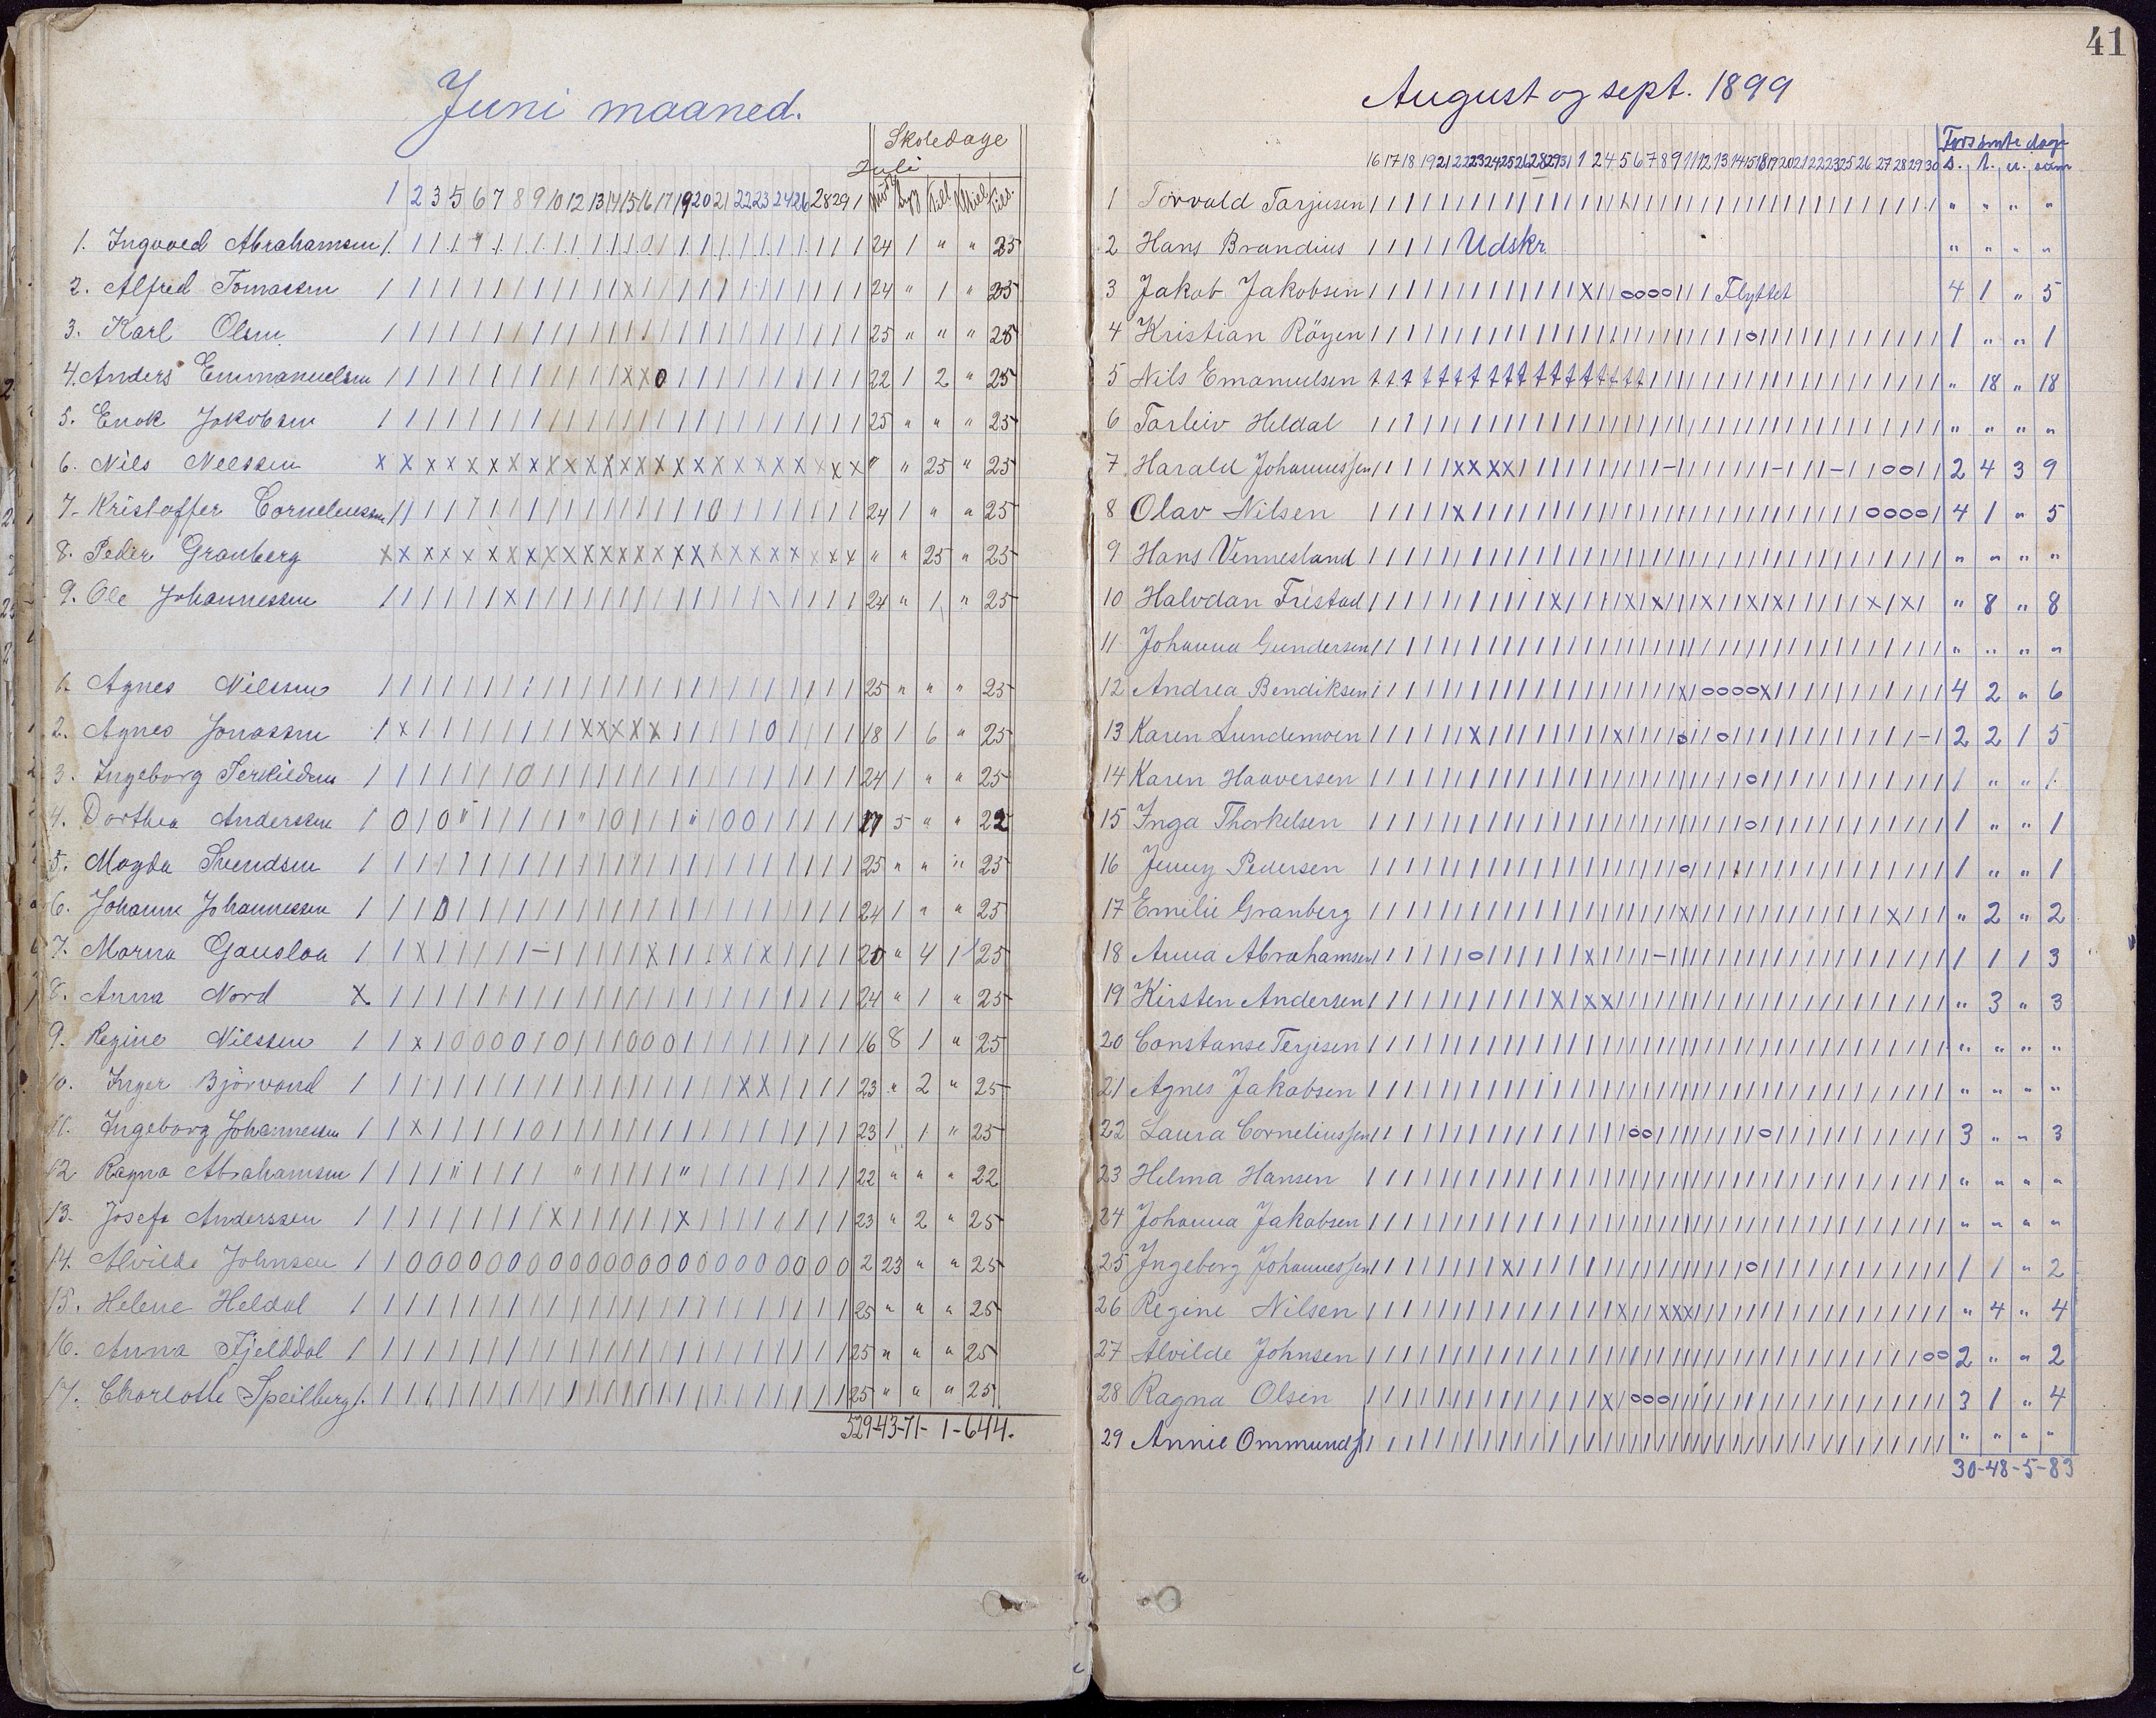 Juni maaned.
Skoledage
Juli
1 2 3 5 6 7 8 9 10 12 13 14 15 16 17 19 20 21 22 23 24 26 28 29 1
1. Ingvald Abrahamsen 24 1 " " 25
2. Alfred Tomassen 24 " 1 " 25
3. Karl Olsen 25 " " " 25
4. Anders Emmanuelsen 22 1 2 " 25
5. Enok Jakobsen 25 " " " 25
6. Nils Neelssen " " 25 " 25
7. Kristoffer Corneliussen 24 1 " " 25
8. Peder Granberg " " 25 " 25
9. Ole Johannessen 24 " 1 " 25
1. Agnes Nilssen 25 " " " 25
2. Agnes Jonassen 18 1 6 " 25
3. Ingeborg Terkildsen 24 1 " " 25
4. Dorthea Anderssen 17 5 " " 22
5. Magda Svendsen 25 " " " 25
6. Johanne Johannessen 24 1 " " 25
7. Marna Gauslaa 20 " 4 1 25
8. Anna Nord 24 " 1 " 25
9. Regine Nilssen 16 8 1 " 25
10. Inger Bjørvand 23 " 2 " 25
11. Ingeborg Johannessen 23 1 1 " 25
12 Ragna Abrahamsen 22 " " " 22
13. Josefa Anderssen 23 " 2 " 25
14. Alvilde Johnsen 2 23 " " 25
15. Helene Heldal 25 " " " 25
16. Anna Fjelddal 25 " " " 25
17. Charlotte Speilberg 25 " " " 25
529-43-71-1-644.
41
August og sept. 1899
Forsømte dage
16 17 18 19 21 22 23 24 25 26 28 29 31 1 2 4 5 6 7 8 9 11 12 13 14 15 18 19 20 21 22 23 25 26 27 28 29 30 s. l. u. sum
1 Torvald Tarjusen " " " "
2 Hans Brandius Udskr. " " " "
3 Jakob Jakobsen Flyttet 4 1 " 5
4 Kristian Röyen 1 " " 1
5 Nils Emanuelsen " 18 " 18
6 Tarleiv Heldal " " " "
7 Harald Johannessen 2 4 3 9
8 Olav Nilsen 4 1 " 5
9 Hans Vennesland " " " "
10 Halvdan Fristad " 8 " 8
11 Johanna Gundersen " " " "
12 Andrea Bendiksen 4 2 " 6
13 Karen Lundemoen 2 2 1 5
14 Karen Haaversen 1 " " 1
15 Inga Thorkelsen 1 " " 1
16 Jenny Pedersen 1 " " 1
17 Emilie Granberg " 2 " 2
18 Anna Abrahamsen 1 1 1 3
19 Kirsten Andersen " 3 " 3
20 Constanse Terjesen " " " "
21 Agnes Jakobsen " " " "
22 Laura Corneliussen 3 " " 3
23 Helma Hansen " " " "
24 Johanna Jakobsen " " " "
25 Ingeborg Johannessen 1 1 " 2
26 Regine Nilsen " 4 " 4
27 Alvilde Johnsen 2 " " 2
28 Ragna Olsen 3 1 " 4
29 Annie Ommunds " " " "
30-48-5-83